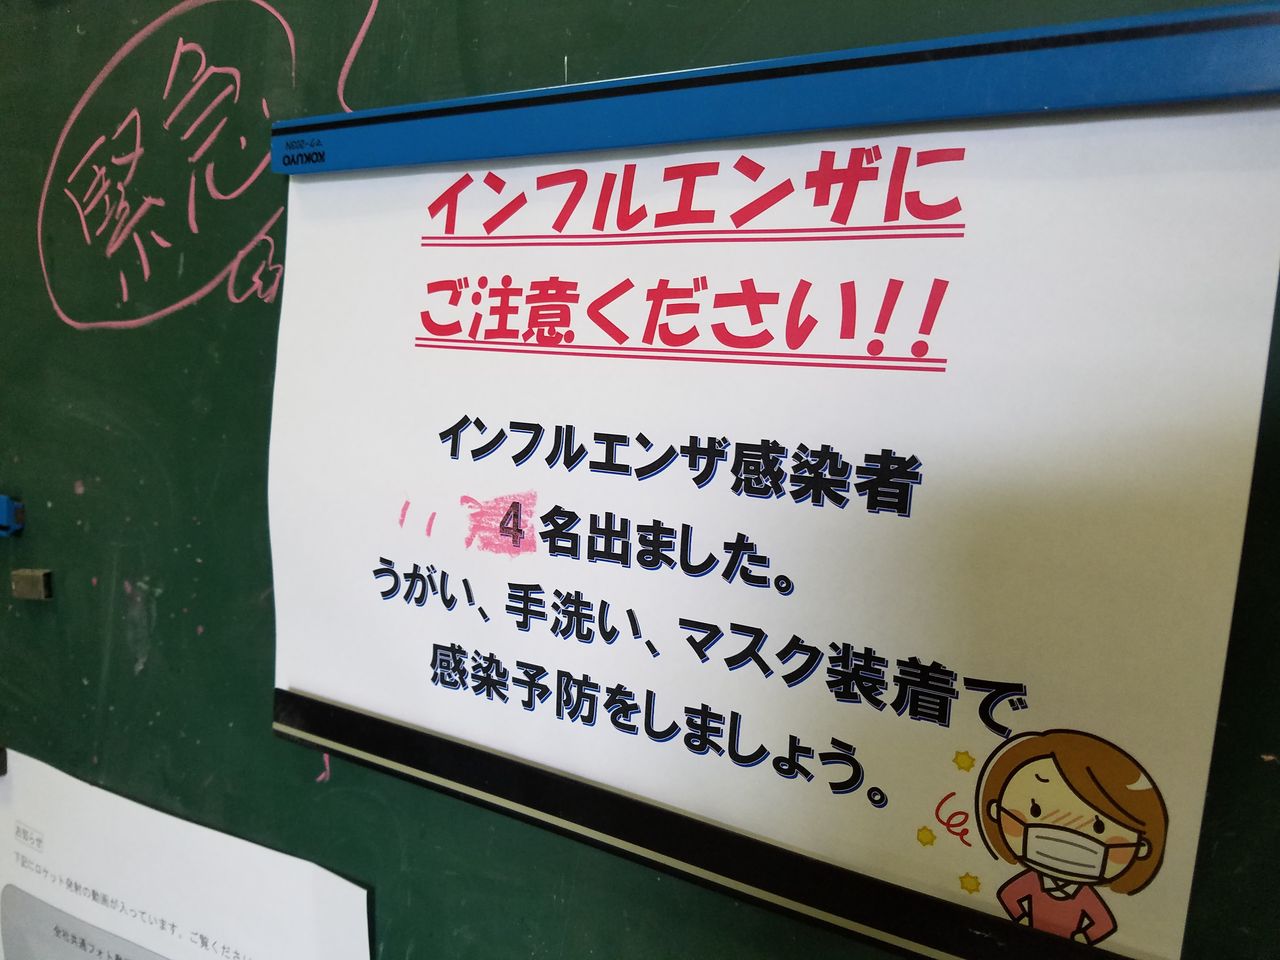 緊急
KOKUYO
マク-203N
インフルエンザに
ご注意ください!!
インフルエンザ感染者
4名出ました。
うがい、手洗い、マスク装着で
感染予防をしましょう。
お知らせ
下記にロケット発射の動画が入っています。ご覧ください
全社共通フォト